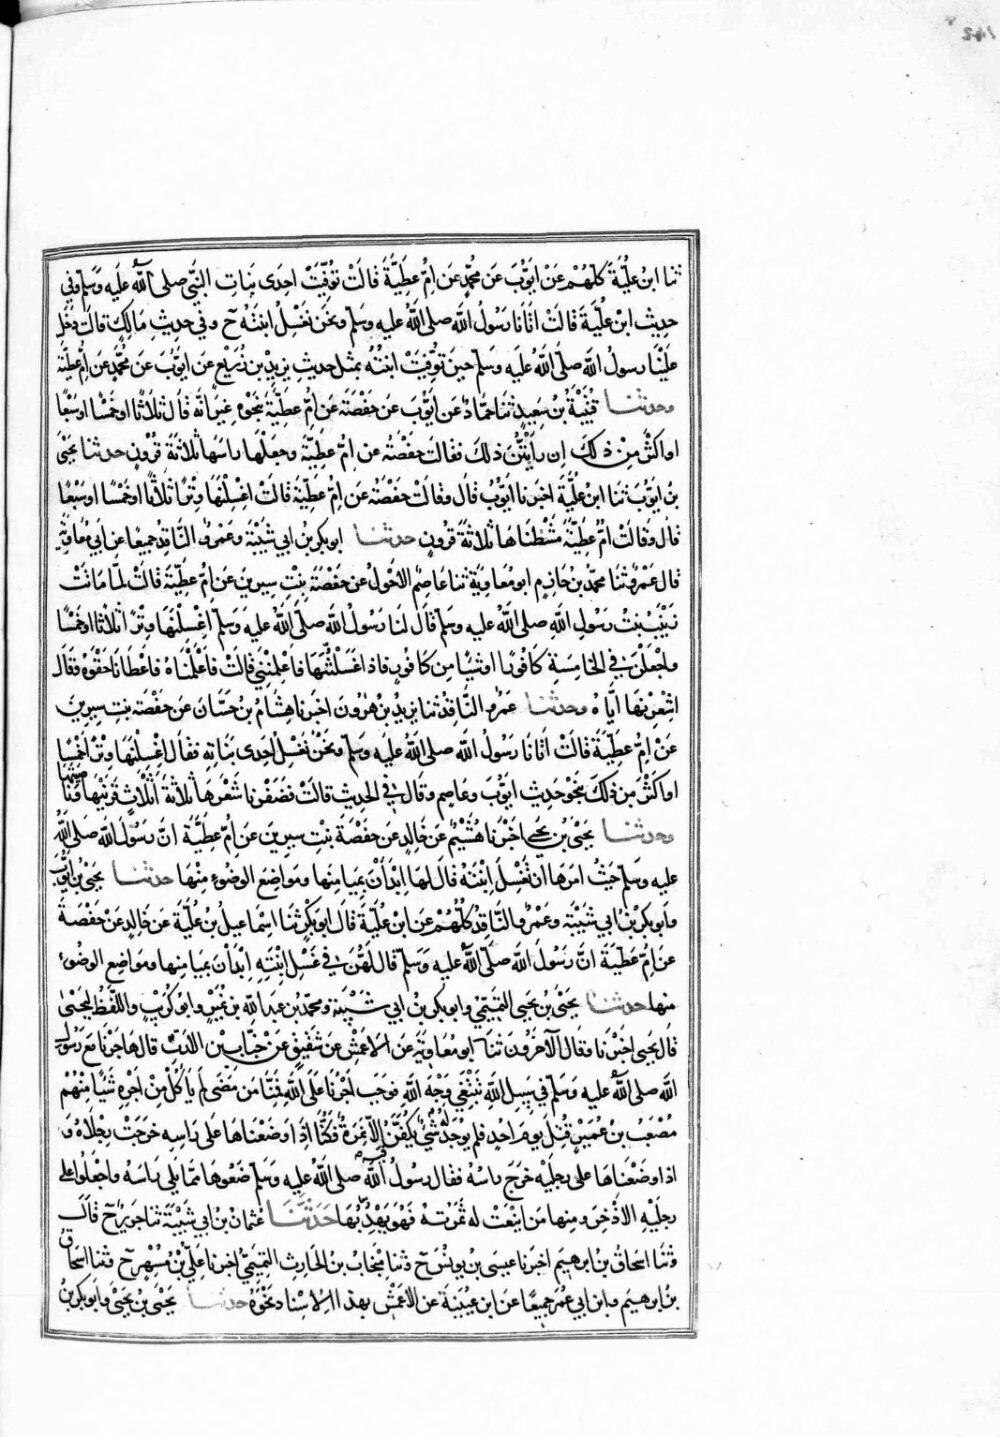 ثنا ابن علية كلهم عن ايوب عن محمد عن ام عطية قالت توفيت احدى بنات النبي صلى الله عليه وسلم وفي
حديث ابن علية قالت اتانا رسول الله صلى الله عليه وسلم ونحن نغسل ابنته ح وفي حديث مالك قالت دخل
علينا رسول الله صلى الله عليه وسلم حين توفيت ابنته بمثل حديث يزيد بن زريع عن ايوب عن محمد عن ام عطية
وحدثنا قتيبة بن سعيد ثنا حماد عن ايوب عن حفصة عن ام عطية بنحوه غير انه قال ثلاثا او خمسا او سبعا
او اكثر من ذلك ان رأيتن ذلك فقالت حفصة عن ام عطية وجعلنا راسها ثلاثة قرون حدثنا يحيى
بن ايوب ثنا ابن علية اخبرنا ايوب قال وقالت حفصة عن ام عطية قالت اغسلنها وترا ثلاثا او خمسا او سبعا
قال وقالت ام عطية مشطناها ثلاثة قرون حدثنا ابو بكر بن ابي شيبة وعمرو الناقد جميعا عن ابي معاوية
قال عمرو ثنا محمد بن حازم ابو معاوية ثنا عاصم الاحول عن حفصة بنت سيرين عن ام عطية قالت لما ماتت
زينب بنت رسول الله صلى الله عليه وسلم قال لنا رسول الله صلى الله عليه وسلم اغسلنها وترا ثلاثا او خمسا
واجعلن في الخامسة كافورا او شيا من كافور فاذا غسلتنها فاعلمنني قالت فاعلمناه فاعطانا حقوه وقال
اشعرنها اياه وحدثنا عمرو الناقد ثنا يزيد بن هرون اخبرنا هشام بن حسان عن حفصة بنت سيرين
عن ام عطية قالت اتانا رسول الله صلى الله عليه وسلم ونحن نغسل احدى بناته فقال اغسلنها وترا خمسا
او اكثر من ذلك بنحو حديث ايوب وعاصم وقال في الحديث قالت فضفرنا شعرها ثلاثة اثلاث قرنيها وناصيتها
وحدثنا يحيى بن يحيى اخبرنا هشيم عن خالد عن حفصة بنت سيرين عن ام عطية ان رسول الله صلى الله
عليه وسلم حيث امرها ان تغسل ابنته قال لها ابدأن بميامنها ومواضع الوضوء منها حدثنا يحيى بن ايوب
وابو بكر بن ابي شيبة وعمرو الناقد كلهم عن ابن علية قال ابو بكر ثنا اسماعيل بن علية عن خالد عن حفصة
عن ام عطية ان رسول الله صلى الله عليه وسلم قال لهن في غسل ابنته ابدأن بميامنها ومواضع الوضوء
منها حدثنا يحيى بن يحيى التميمي وابو بكر بن ابي شيبة ومحمد بن عبد الله بن نمير وابو كريب واللفظ ليحيى
قال يحيى اخبرنا وقال الآخرون ثنا ابو معاوية عن الاعمش عن شقيق عن خباب بن الارت قال هاجرنا مع رسول
الله صلى الله عليه وسلم في سبيل الله نبتغي وجه الله فوجب اجرنا على الله فمنا من مضى لم ياكل من اجره شيا منهم
مصعب بن عمير قتل يوم احد فلم يوجد له شئ يكفن فيه الا نمرة فكنا اذا وضعناها على راسه خرجت رجلاه و
اذا وضعناها على رجليه خرج راسه فقال رسول الله صلى الله عليه وسلم ضعوها مما يلي راسه واجعلوا على
رجليه الاذخر ومنها من اينعت له ثمرته فهو يهدبها حدثنا عثمان بن ابي شيبة ثنا جرير ح قال
وثنا اسحاق بن ابرهيم اخبرنا عيسى بن يونس ح وثنا منجاب بن الحارث التميمي اخبرنا علي بن مسهر ح وثنا اسحاق
بن ابرهيم وابن ابي عمر جميعا عن ابن عيينة عن الاعمش بهذا الاسناد نحوه حدثنا يحيى بن يحيى وابو بكر بن